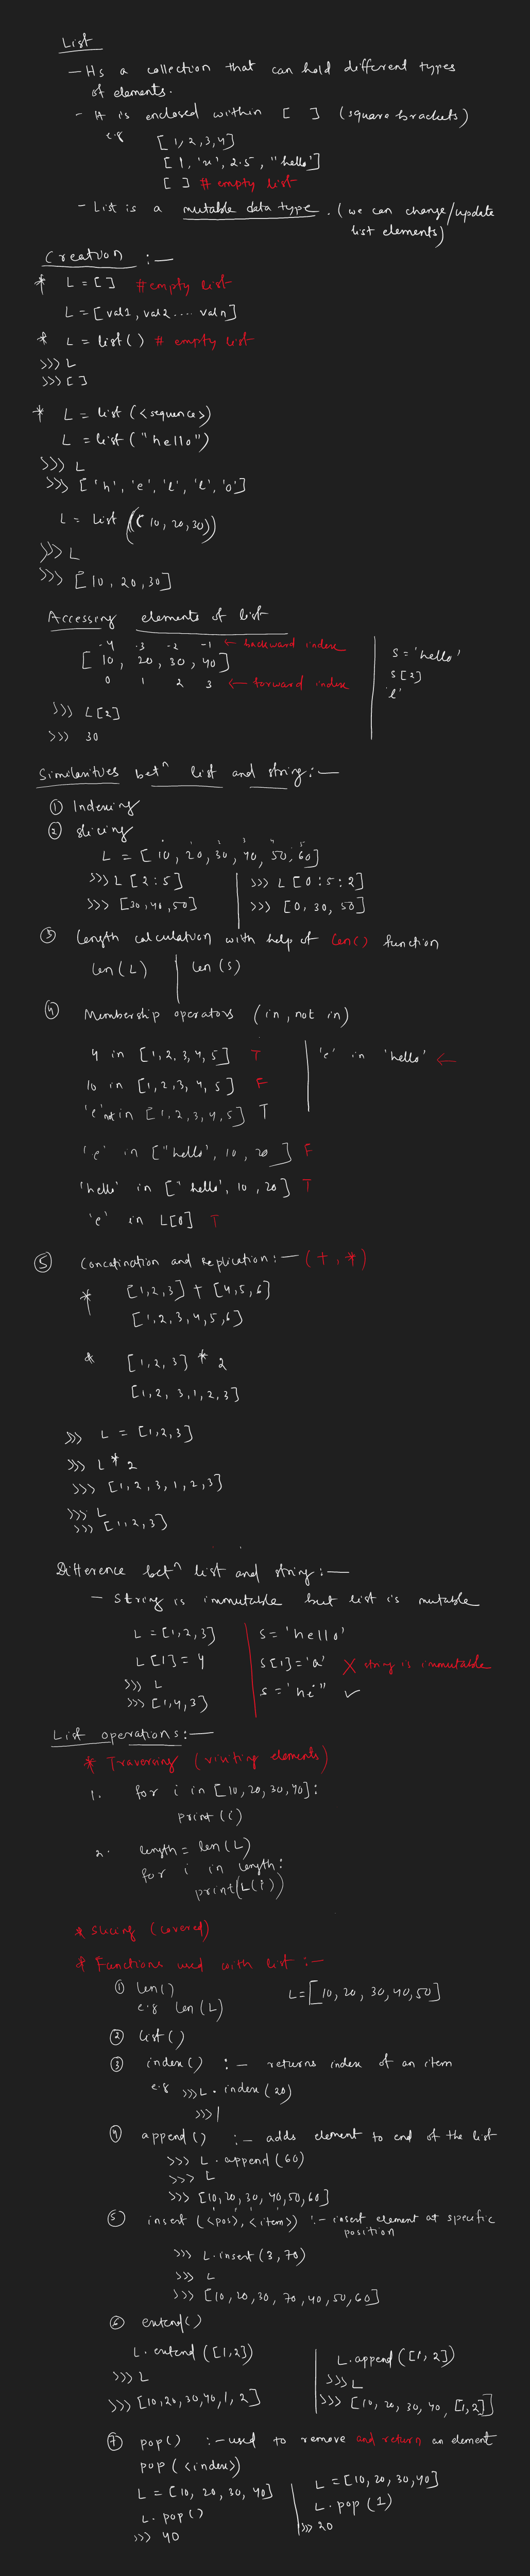 List
- It's a collection that can hold different types
of elements.
- It is enclosed within [ ] (square brackets)
e.g [1,2,3,4]
[1,'x',2.5,"hello']
[ ] # empty list
- List is a mutable data type. (we can change/update
list elements)
Creation :-
* L = [ ] # empty list
L = [val1, val2 .... valn]
* L = list() # empty list
>>> L
>>> [ ]
* L = list (<sequence>)
L = list ("hello")
>>> L
>>> ['h','e','l','l','o']
L = list ((10,20,30))
>>> L
>>> [10,20,30]
Accessing elements of list
-4 -3 -2 -1 ← backward index
[10, 20, 30, 40]
0 1 2 3 ← forward index
>>> L[2]
>>> 30
s = 'hello'
s[2]
'l'
Similarities betn list and string :-
① Indexing
② slicing
0 1 2 3 4 5
L = [10, 20, 30, 40, 50, 60]
>>> L[2:5]
>>> [30,40,50]
>>> L[0:5:2]
>>> [0, 30, 50]
③ Length calculation with help of len() function
len(L) len(s)
④ Membership operators (in, not in)
4 in [1,2,3,4,5] T
10 in [1,2,3,4,5] F
'e' not in [1,2,3,4,5] T
'e' in 'hello' ←
'e' in ["hello', 10, 20] F
'hello' in ["hello', 10, 20] T
'e' in L[0] T
⑤ Concatination and Replication :- (+, *)
* [1,2,3] + [4,5,6]
[1,2,3,4,5,6]
* [1,2,3] * 2
[1,2,3,1,2,3]
>>> L = [1,2,3]
>>> L * 2
>>> [1,2,3,1,2,3]
>>> L
>>> [1,2,3]
Difference betn list and string :-
- String is immutable but list is mutable
L = [1,2,3]
L[1] = 4
>>> L
>>> [1,4,3]
s = 'hello'
s[1] = 'a' X string is immutable
s = 'hi" ✓
List operations :-
* Traversing (visiting elements)
1. for i in [10,20,30,40]:
print(i)
2. length = len(L)
for i in length:
print(L(i))
* Slicing (covered)
* Functions used with list :-
① len() L = [10, 20, 30, 40, 50]
e.g len(L)
② list()
③ index() :- returns index of an item
e.g >>> L.index(20)
>>> 1
④ append() :- adds element to end of the list
>>> L.append(60)
>>> L
>>> [10,20,30,40,50,60]
⑤ insert (<pos>, <item>) :- insert element at specific
position
>>> L.insert(3,70)
>>> L
>>> [10,20,30,70,40,50,60]
⑥ extend()
L.extend([1,2])
>>> L
>>> [10,20,30,40,1,2]
L.append([1,2])
>>> L
>>> [10, 20, 30, 40, [1,2]]
⑦ pop() :- used to remove and return an element
pop(<index>)
L = [10, 20, 30, 40]
L.pop()
>>> 40
L = [10,20,30,40]
L.pop(1)
>>> 20